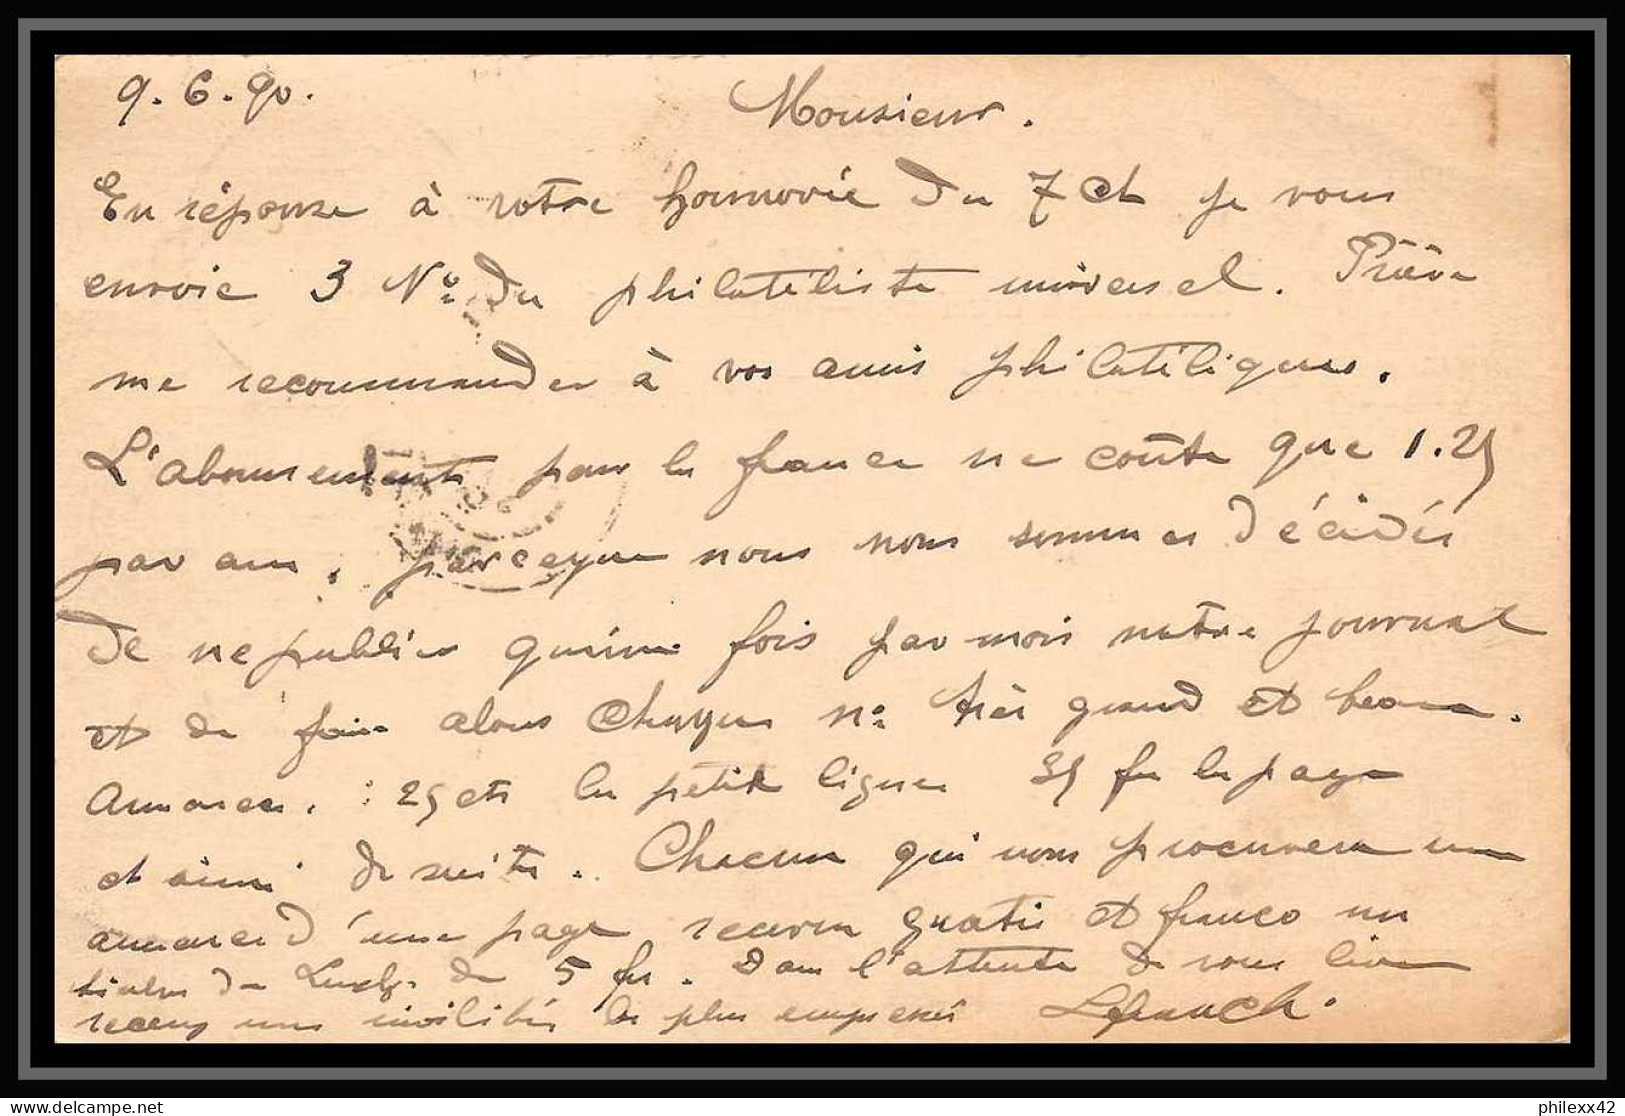 9.6.90.
Monsieur.
En réponse à votre honnorée du 7 ct je vous
envoie 3 No: du philatéliste universel. Prière
me recommander à vos amis philatéliques.
L'abonnement pour la france ne coûte que 1.25
par an, parceque nous nous sommes décidés
de ne publier qu'une fois par mois notre journal
et de faire alors chaque no: très grand et beau.
Annonces. : 25 cts la petite ligne 35 frs la page
et ainsi de suite. Chacun qui nous procurera une
annonce d'une page recevra gratis et franco un
timbre de Luxbg. de 5 frs. Dans l'attente de vous lire
recevez mes civilités les plus empressés
philexx42